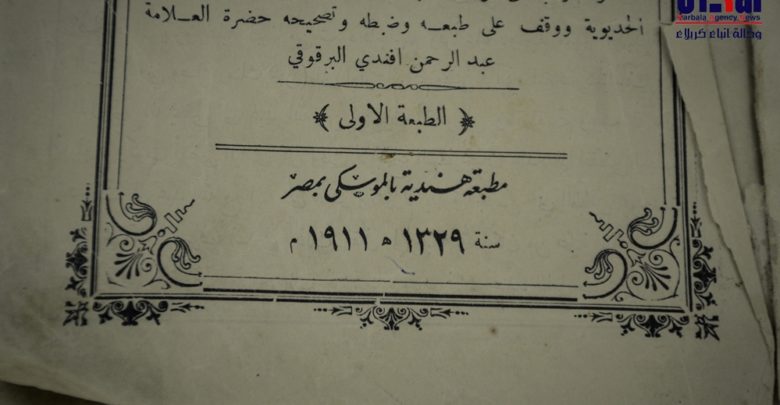 Karbala Agency News
وكالة انباء كربلاء
الخديوية ووقف على طبعه وضبطه وتصحيحه حضرة العلامة
عبد الرحمن افندي البرقوقي
﴿ الطبعة الاولى ﴾
مطبعة هندية بالموسكى بمصر
سنة ١٣٢٩ ه ١٩١١ م